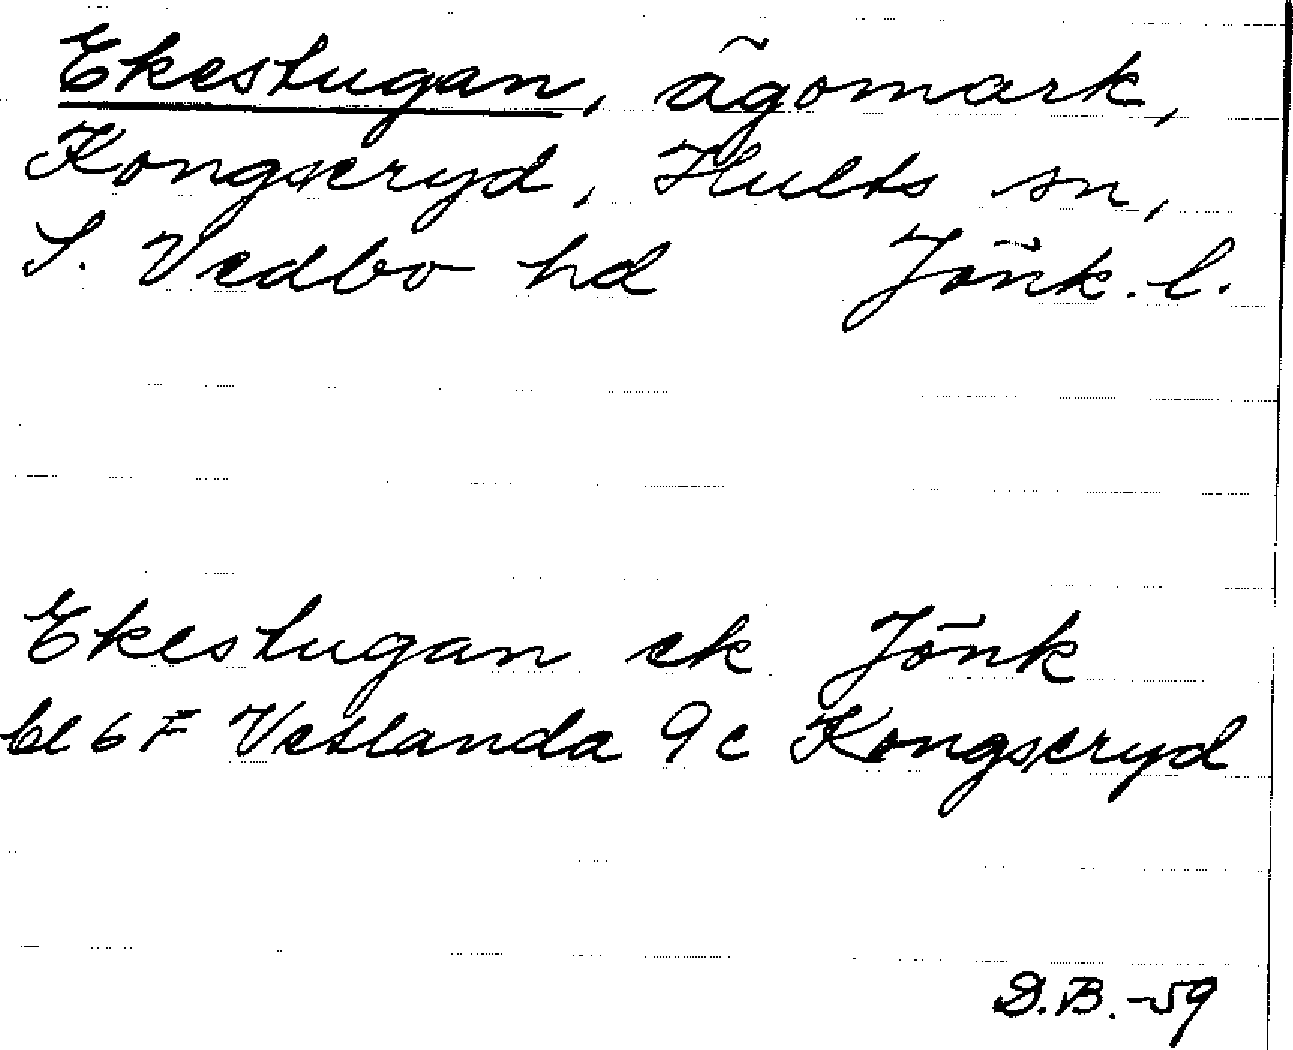 Ekestugan, ägomark,
Kongseryd, Hults sn,
S. Vedbo hd Jönk. l.
Ekestugan ek Jönk
bl 6 F Vetlanda 9 c Kongseryd
D.B. -59